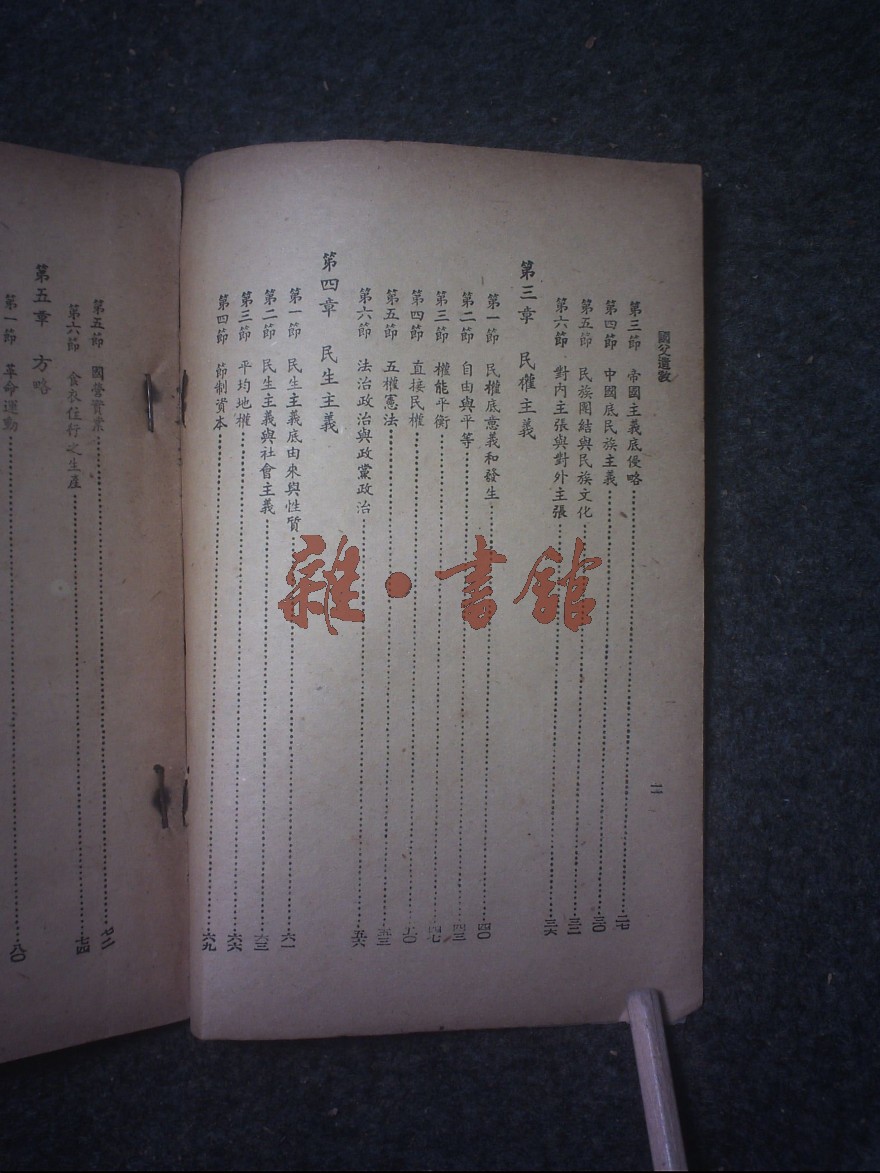 國父遺教
二
第三節 帝國主義底侵略……二七
第四節 中國底民族主義……三〇
第五節 民族團結與民族文化……三二
第六節 對內主張與對外主張……三六
第三章 民權主義
第一節 民權底意義和發生……四〇
第二節 自由與平等……四三
第三節 權能平衡……四七
第四節 直接民權……五〇
第五節 五權憲法……五三
第六節 法治政治與政黨政治……五六
第四章 民生主義
第一節 民生主義底由來與性質……六一
第二節 民生主義與社會主義……六三
第三節 平均地權……六六
第四節 節制資本……六九
第五節 國營實業……七二
第六節 食衣住行之生產……七四
第五章 方略
第一節 革命運動……八〇
雜·書館